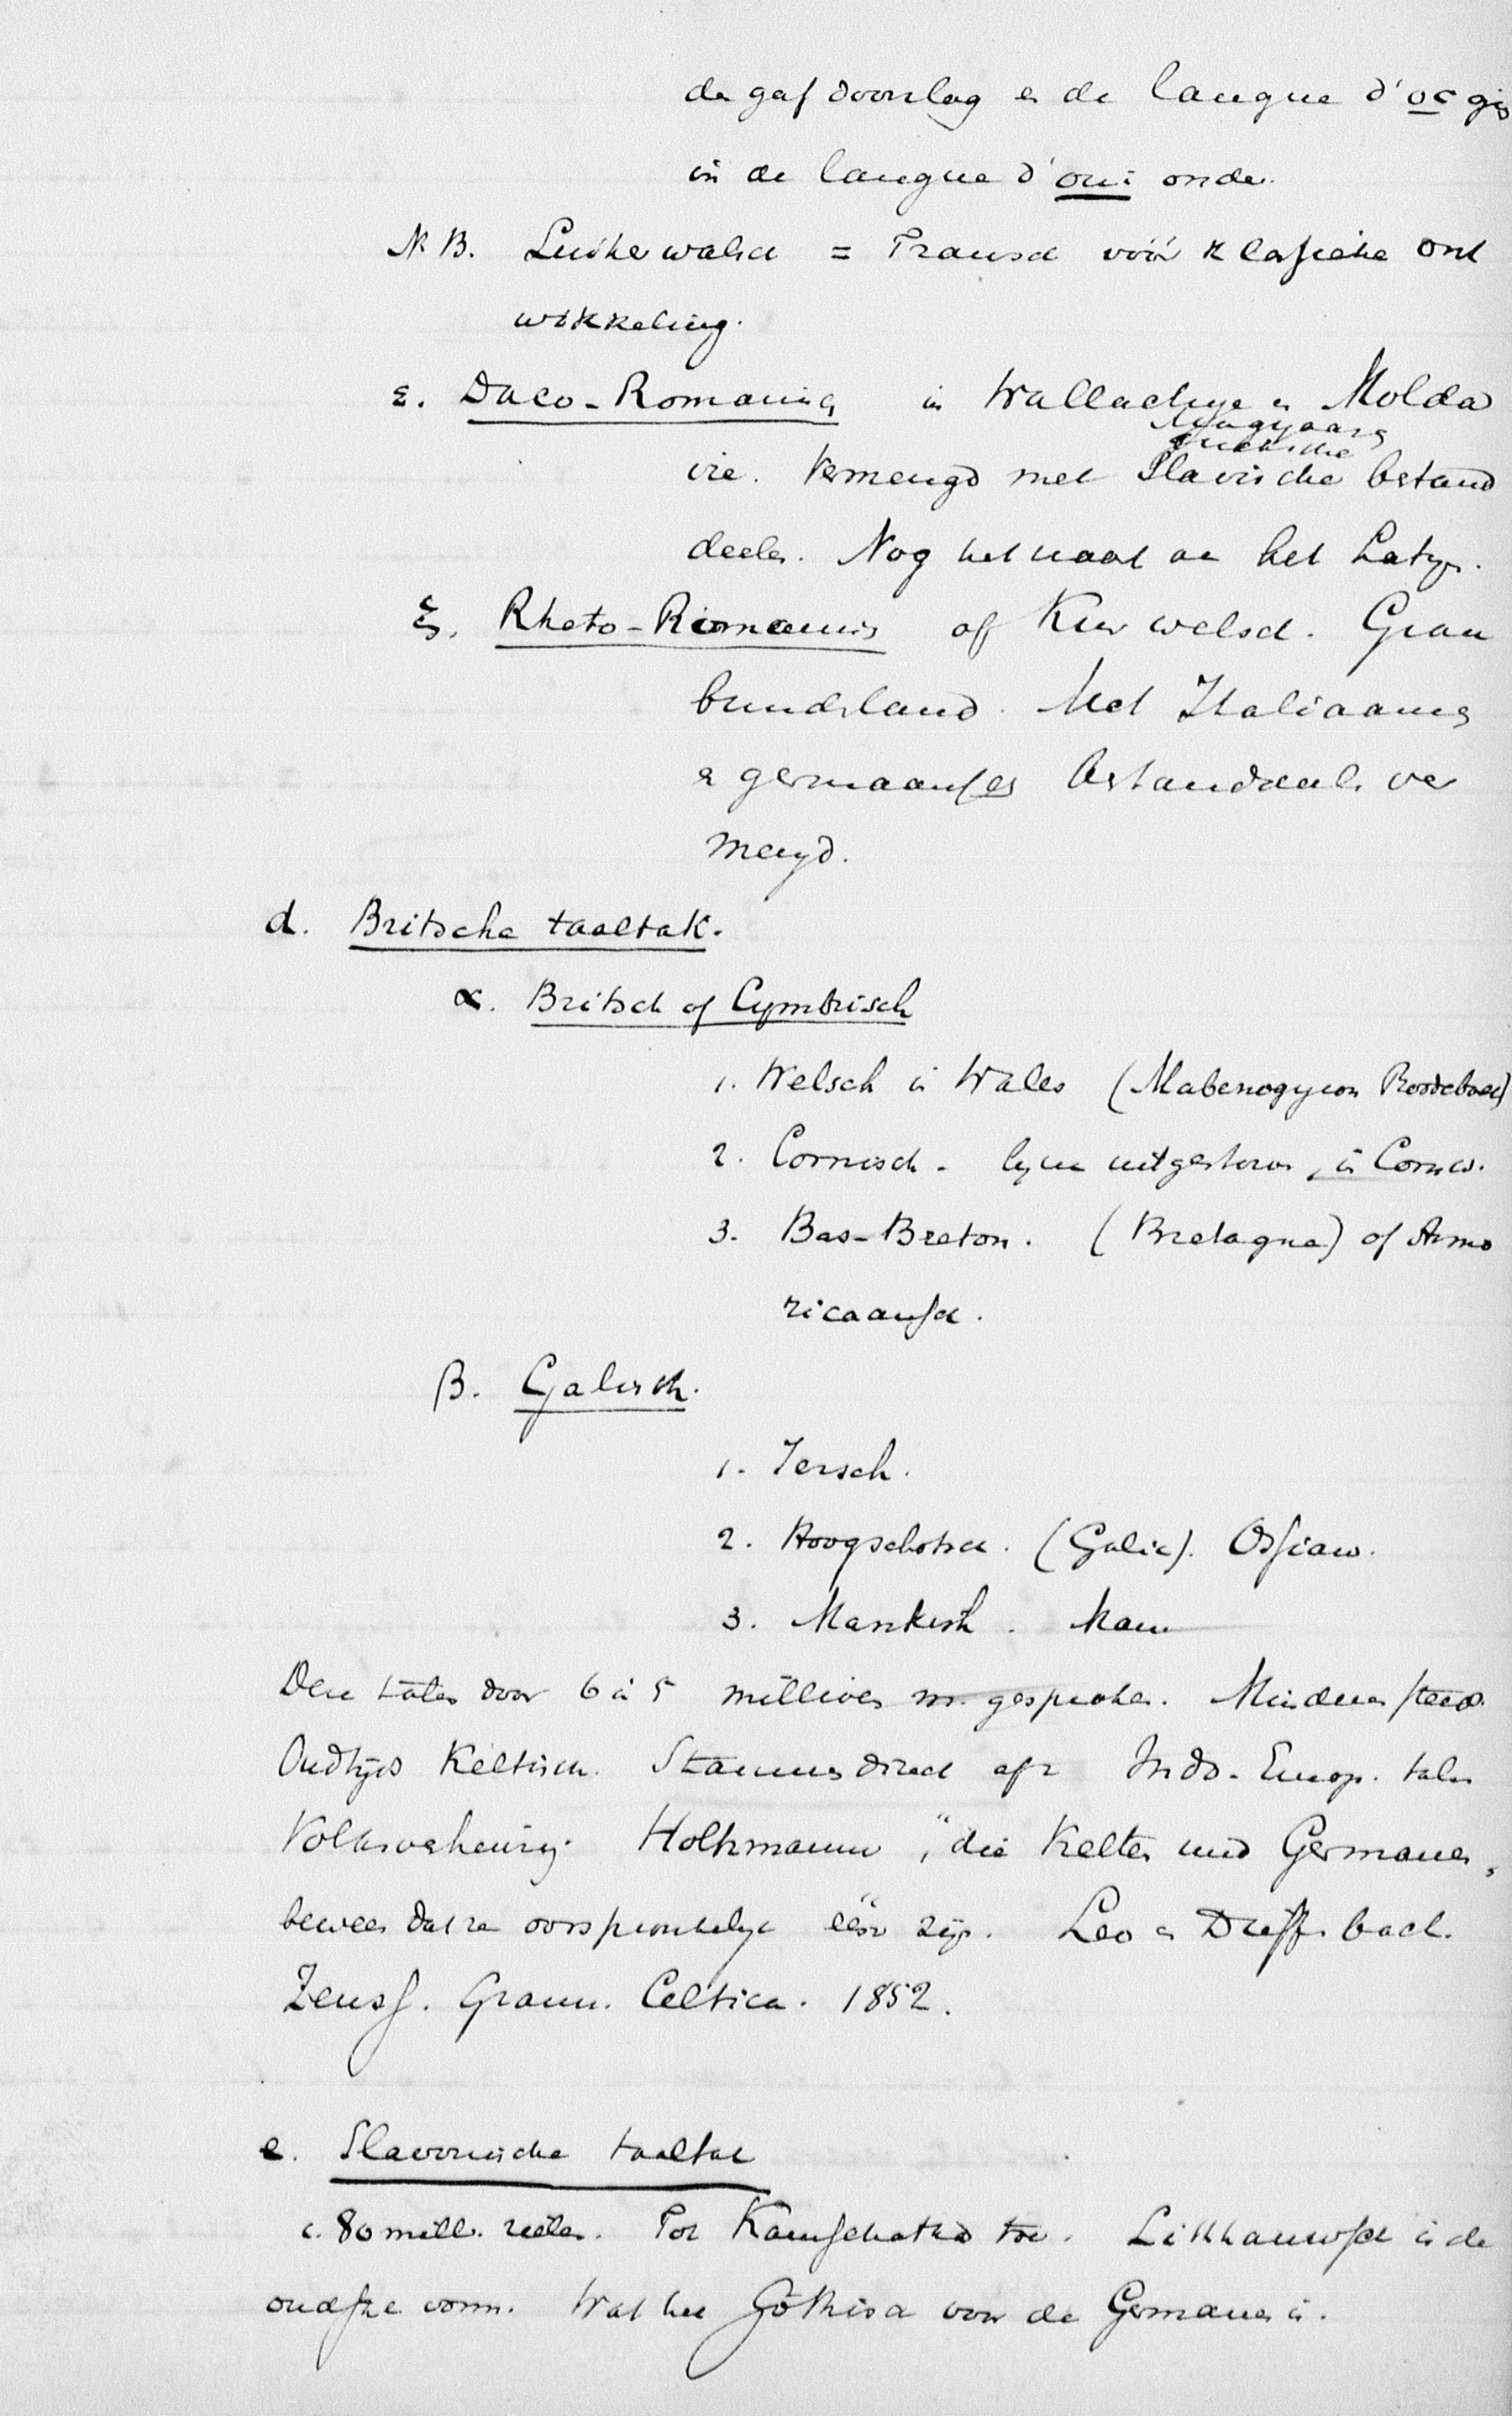 de gaf doorslag en de langue d'oc ging
in de langue d'oui onder.
N.B. Luikerwalsch = Fransch vóór klassieke ont
wikkeling.
ε. Daco-Romanisch in Wallachye en Molda
Magyaarsche
Turksche
vie. Vermengd met Slavische bestand
deelen. Nog het naast aan het Latyn.
ξ. Rheto-Romanisch of Kurwelsch. Grau
bunderland. Met Italiaansch
en germaansch bestanddeelen ver
mengd.
d. Britsche taaltak.
α. Britsch of Cymbrisch
1. Welsch in Wales (Mabenogyeon Roodeboek)
2. Cornisch - bijna uitgestorven, in Cornw.
3. Bas-Breton. (Bretagne) of Armo
ricaansch.
β. Galisch.
1. Iersch.
2. Hoogschotsch. (Galic). Ossian.
3. Manksch. Man
Deze talen door 6 à 5 millioen m. gesproken. Minderen steeds.
Oudtijds Keltisch. Stammen direct af Indo-Europ. talen
Volksverhuizing. Holtzmann, "die Kelten und Germanen,
bewees dat ze oorspronkelijk één zijn. Leo en Dieffenbach.
Zeuss. Gramm. Celtica. 1852.
e. Slavonische taaltak
c. 80 mill. zielen. Tot Kamschatka toe. Litthauwsch is de
oudste vorm. Wat het Gothisch voor de Germanen is.